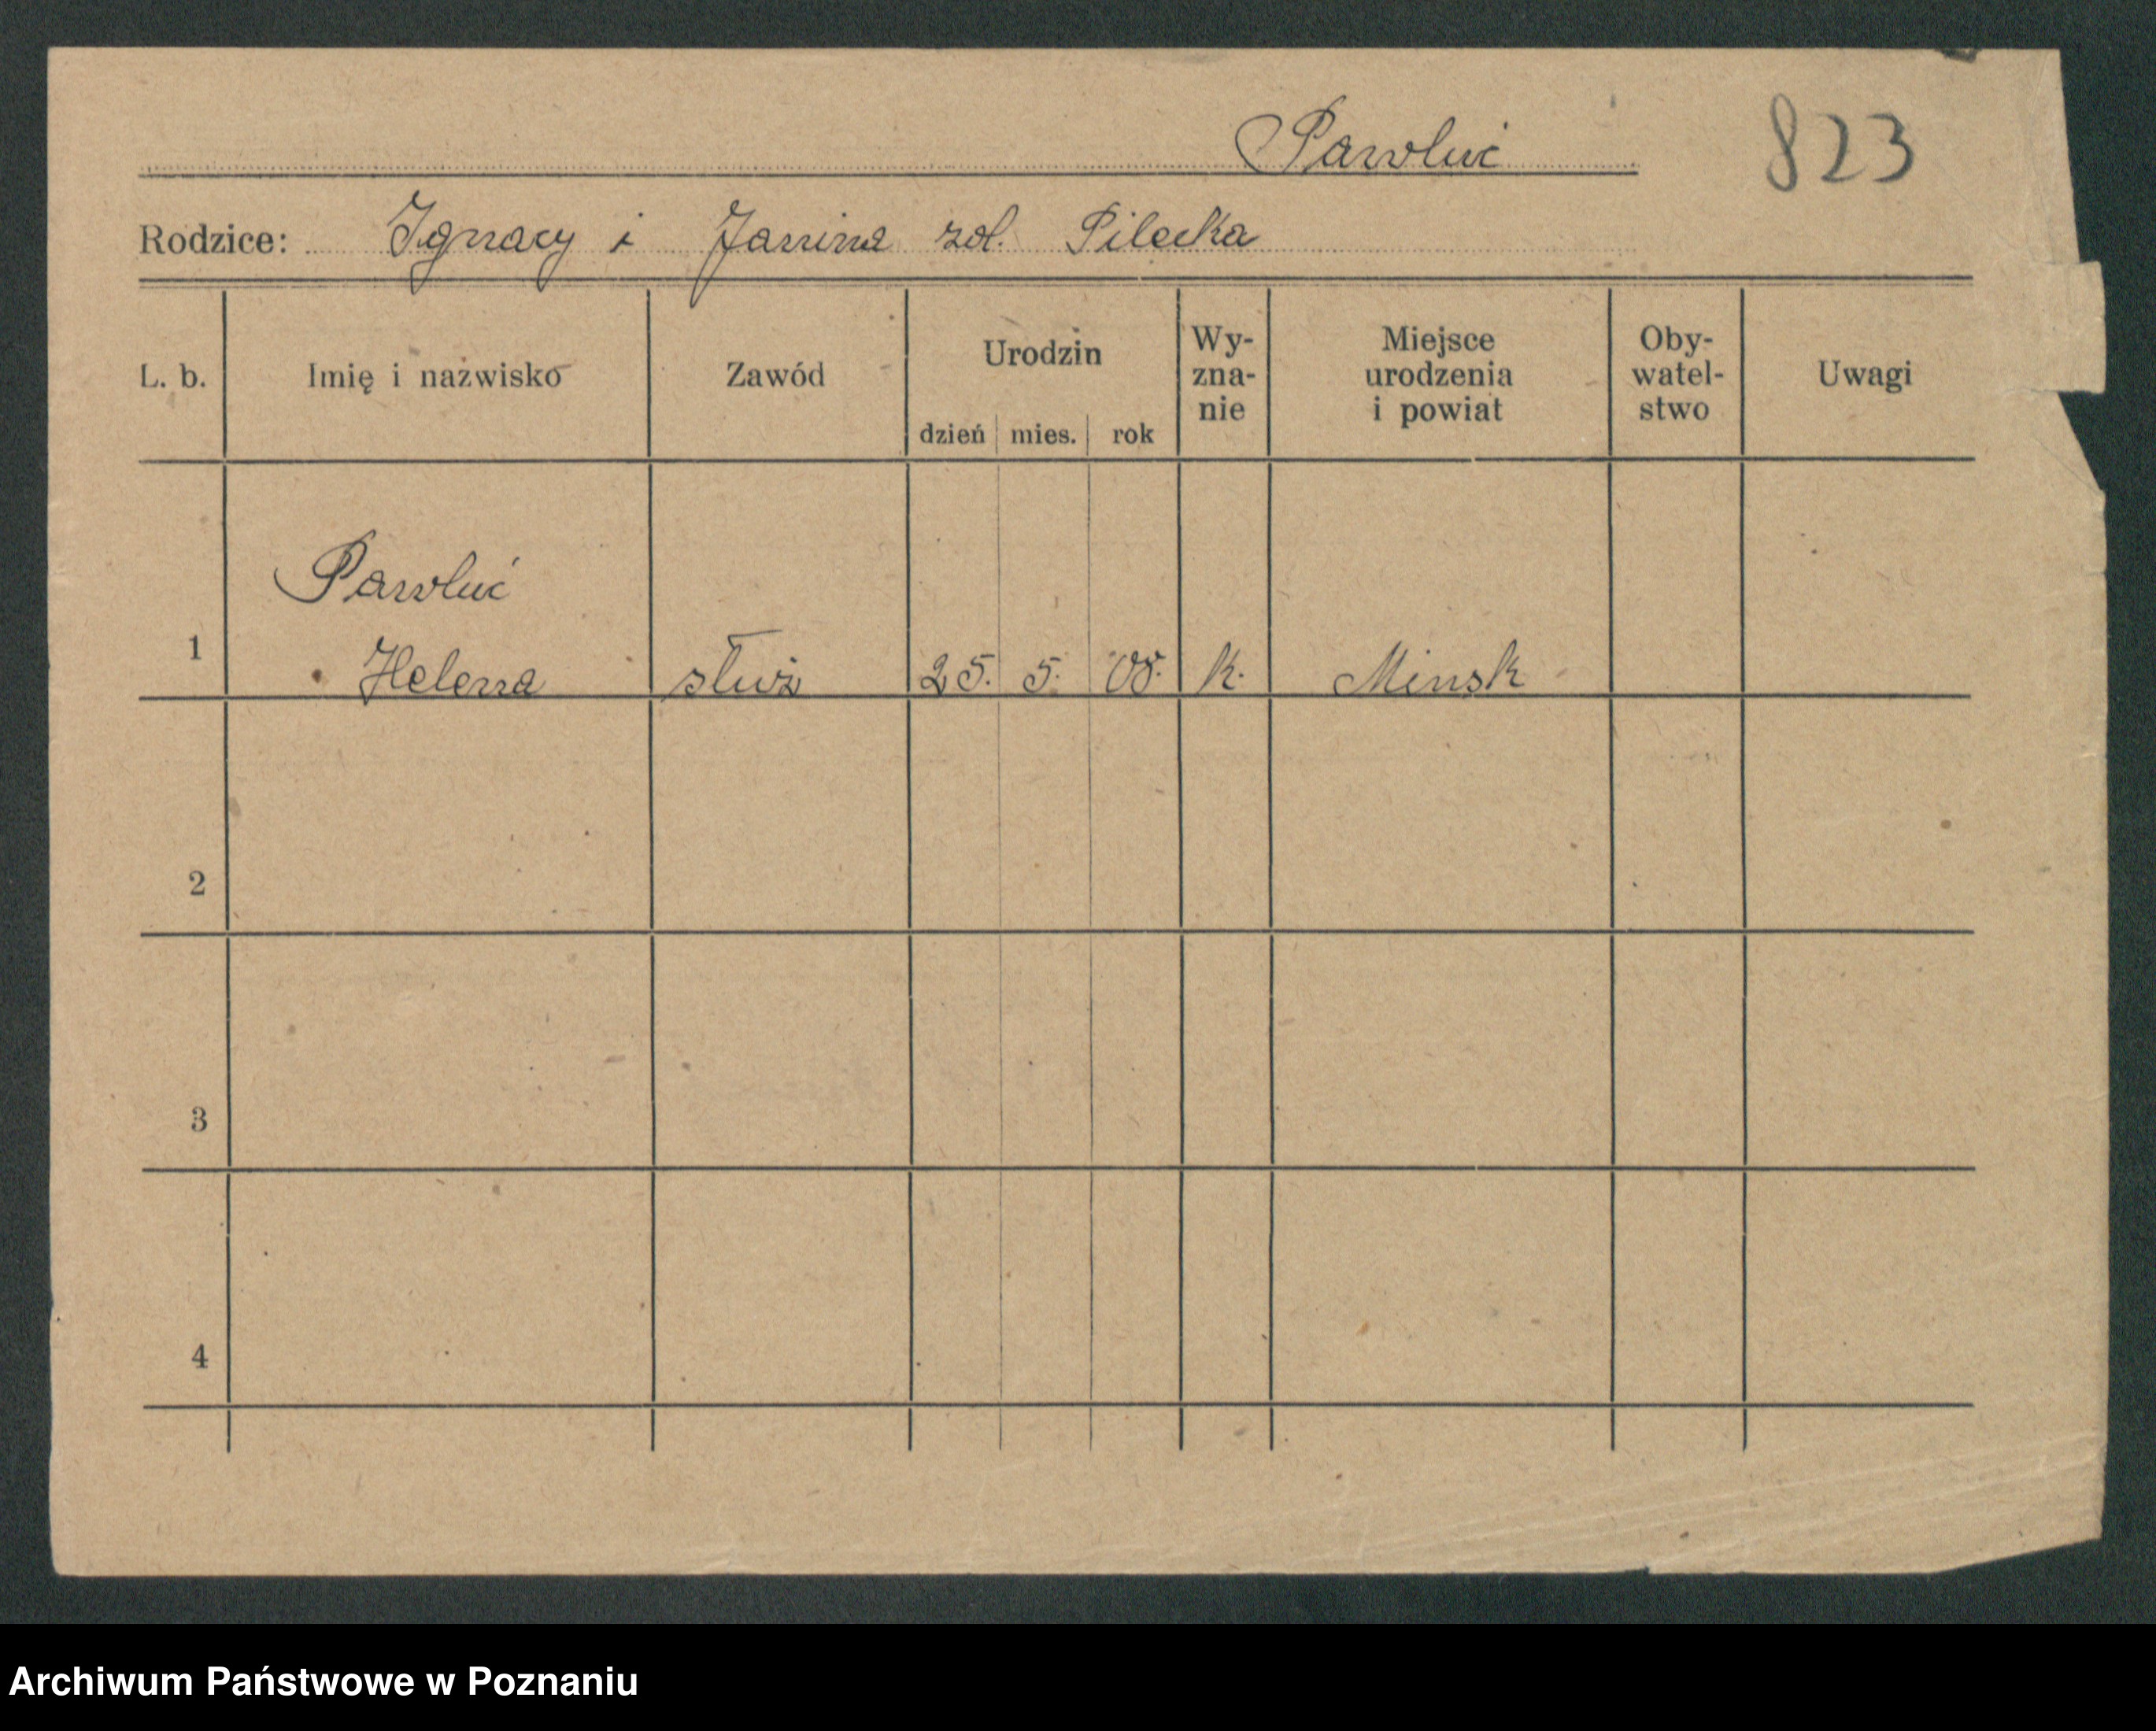 Pawluć 823
Rodzice: Ignacy i Janina zd. Pilecka
L. b. Imię i nazwisko Zawód Urodzin dzień mies. rok Wy-zna-nie Miejsce urodzenia i powiat Oby-watel-stwo Uwagi
Pawluć
1 Helena służ 25. 5. 08. k. Minsk
2
3
4
Archiwum Państwowe w Poznaniu